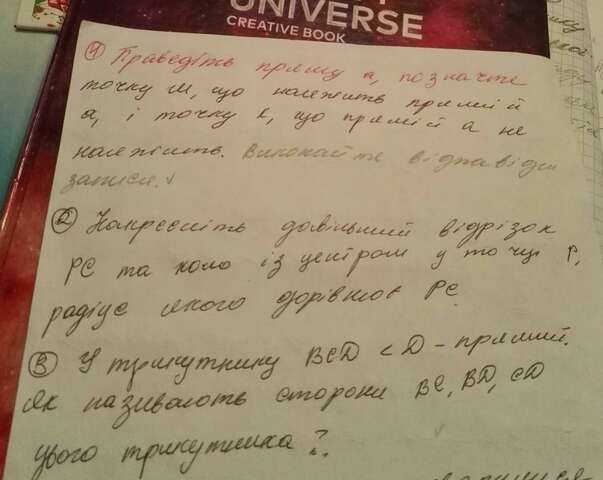 UNIVERSE
CREATIVE BOOK
① Проведіть пряму a, позначте
точку M, що належить прямій
a, і точку K, що прямій a не
належить. Виконайте відповідні
записи.
② Накресліть довільний відрізок
PC та коло із центром у точці P,
радіус якого дорівнює PC.
③ У трикутнику BCD <D - прямий.
Як називають сторони BC, BD, CD
цього трикутника?